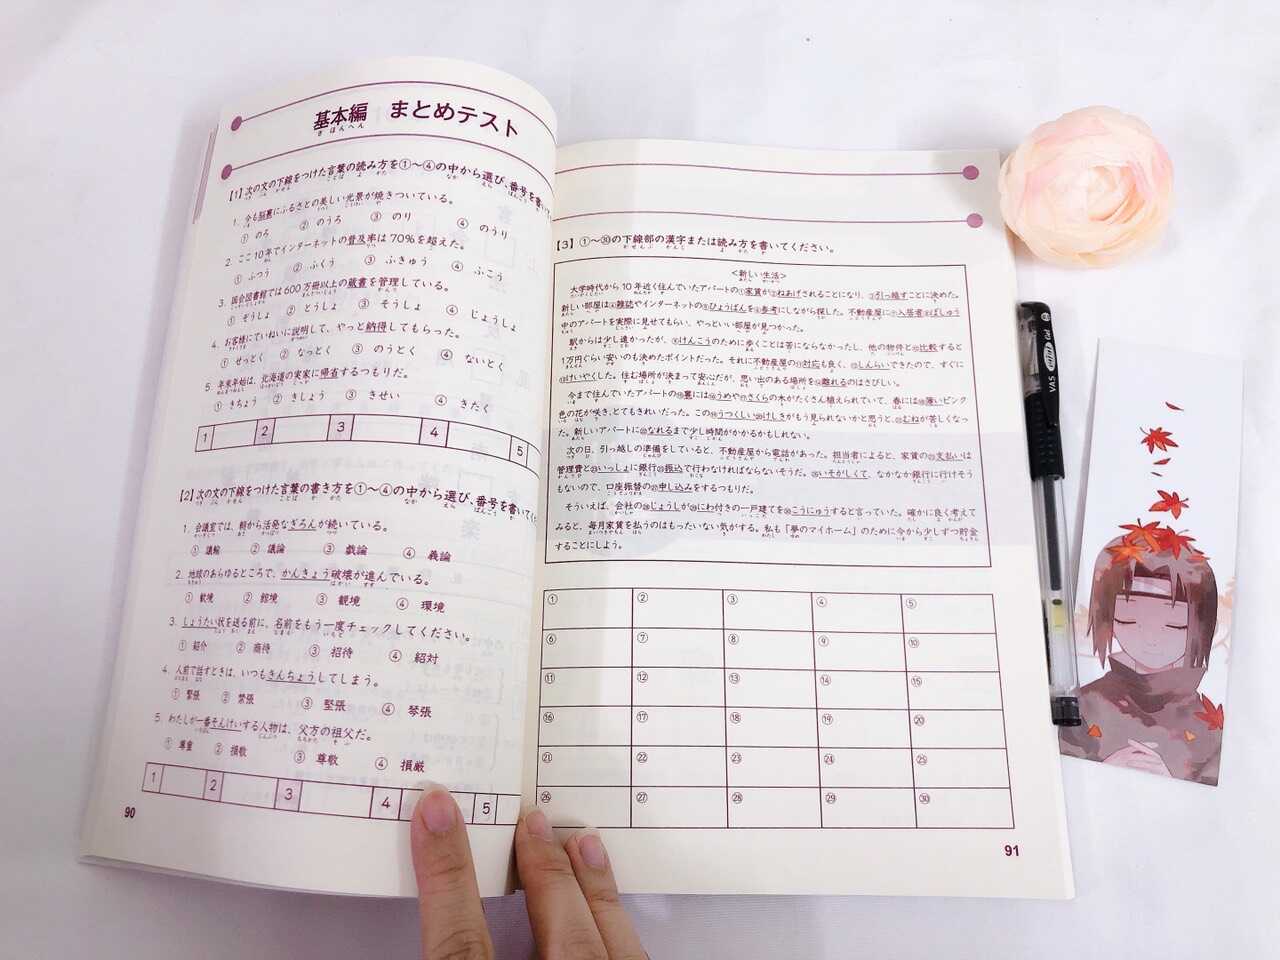 基本編 まとめテスト
きほんへん
【1】次の文の下線をつけた言葉の読み方を①〜④の中から選び、番号を書いて
1. 今も脳裏にふるさとの美しい光景が焼きついている。
① のろ ② のうろ ③ のり ④ のうり
2. ここ10年でインターネットの普及率は70%を超えた。
① ふつう ② ふくう ③ ふきゅう ④ ふこう
3. 国会図書館では600万冊以上の蔵書を管理している。
① ぞうしょ ② とうしょ ③ そうしょ ④ じょうしょ
4. お客様にていねいに説明して、やっと納得してもらった。
① せっとく ② なっとく ③ のうとく ④ ないとく
5. 年末年始は、北海道の実家に帰省するつもりだ。
① きちょう ② きしょう ③ きせい ④ きたく
1 2 3 4 5
【2】次の文の下線をつけた言葉の書き方を①〜④の中から選び、番号を書いてく
1. 会議室では、朝から活発なぎろんが続いている。
① 議輪 ② 議論 ③ 戯論 ④ 義論
2. 地球のあらゆるところで、かんきょう破壊が進んでいる。
① 歓境 ② 館境 ③ 観境 ④ 環境
3. しょうたい状を送る前に、名前をもう一度チェックしてください。
① 紹介 ② 商待 ③ 招待 ④ 紹対
4. 人前で話すときは、いつもきんちょうしてしまう。
① 緊張 ② 禁張 ③ 堅張 ④ 琴張
5. わたしが一番そんけいする人物は、父方の祖父だ。
① 尊重 ② 損敬 ③ 尊敬 ④ 損厳
1 2 3 4 5
90
【3】①〜㉚の下線部の漢字または読み方を書いてください。
<新しい生活>
大学時代から10年近く住んでいたアパートの①家賃が②ねあげされることになり、③引っ越すことに決めた。
新しい部屋は④雑誌やインターネットの⑤ひょうばんを⑥参考にしながら探した。不動産屋に⑦入居者⑧ぼしゅう
中のアパートを実際に見せてもらい、やっといい部屋が見つかった。
駅からは少し遠かったが、⑨けんこうのために歩くことは苦にならなかったし、他の物件と⑩比較すると
1万円ぐらい安いのも決めたポイントだった。それに不動産屋の⑪対応も良く、⑫しんらいできたので、すぐに
⑬けいやくした。住む場所が決まって安心だが、思い出のある場所を⑭離れるのはさびしい。
今まで住んでいたアパートの⑮裏には⑯うめや⑰さくらの木がたくさん植えられていて、春には⑱薄いピンク
色の花が咲き、とてもきれいだった。この⑲うつくしい⑳けしきがもう見られないかと思うと、㉑むねが苦しくなっ
た。新しいアパートに㉒なれるまで少し時間がかかるかもしれない。
次の日、引っ越しの準備をしていると、不動産屋から電話があった。担当者によると、家賃の㉓支払いは
管理費と㉔いっしょに銀行㉕振込で行わなければならないそうだ。㉖いそがしくて、なかなか銀行に行けそう
もないので、口座振替の㉗申し込みをするつもりだ。
そういえば、会社の㉘じょうしが㉙にわ付きの一戸建てを㉚こうにゅうすると言っていた。確かに良く考えて
みると、毎月家賃を払うのはもったいない気がする。私も「夢のマイホーム」のために今から少しずつ貯金
することにしよう。
① ② ③ ④ ⑤
⑥ ⑦ ⑧ ⑨ ⑩
⑪ ⑫ ⑬ ⑭ ⑮
⑯ ⑰ ⑱ ⑲ ⑳
㉑ ㉒ ㉓ ㉔ ㉕
㉖ ㉗ ㉘ ㉙ ㉚
91
VAS Gel